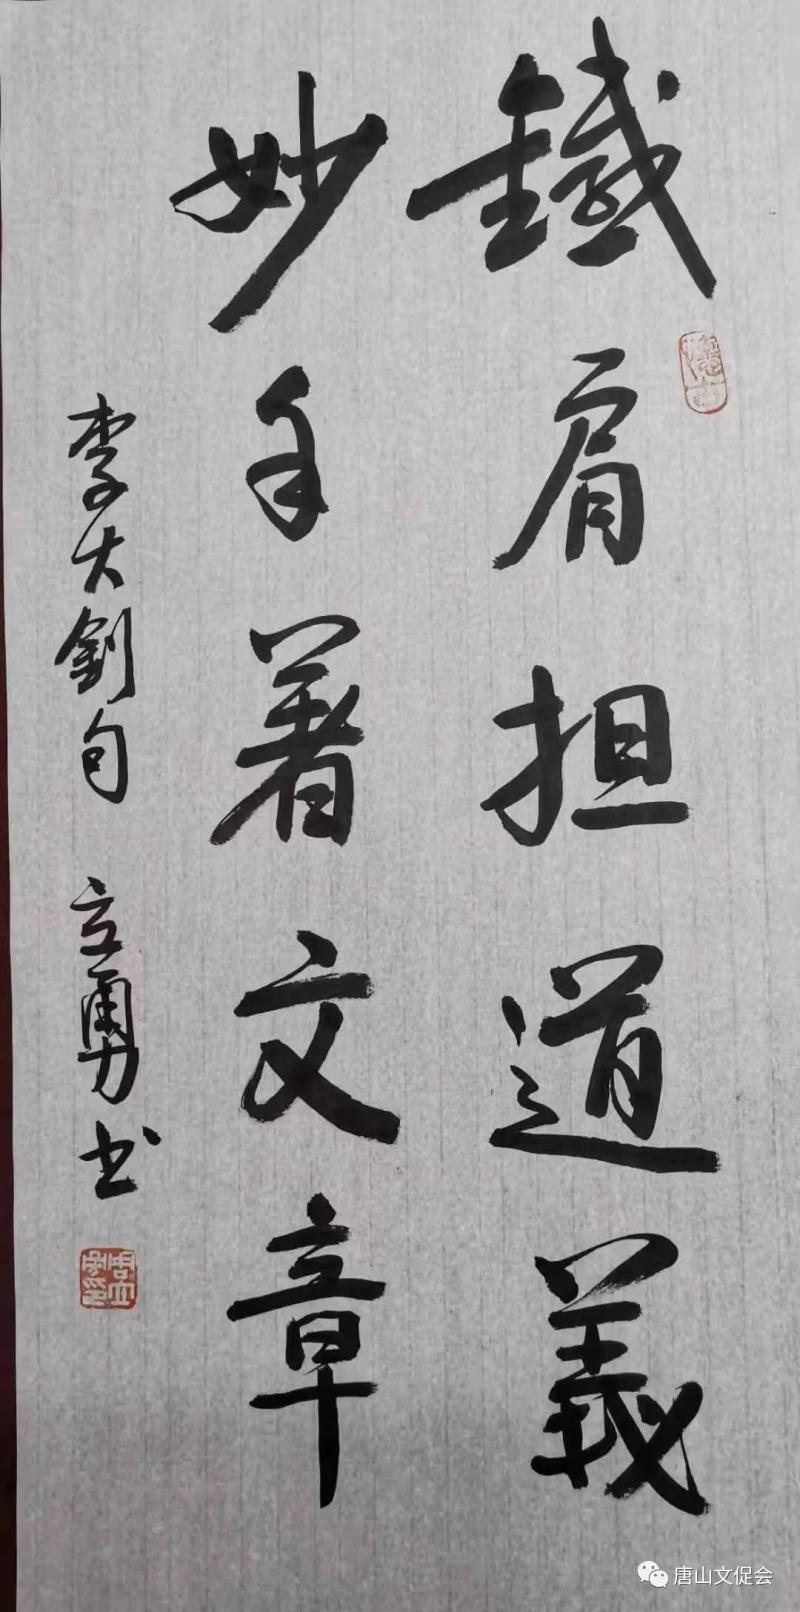 鐵肩担道義
妙手著文章
李大釗句 立勇书
唐山文促会